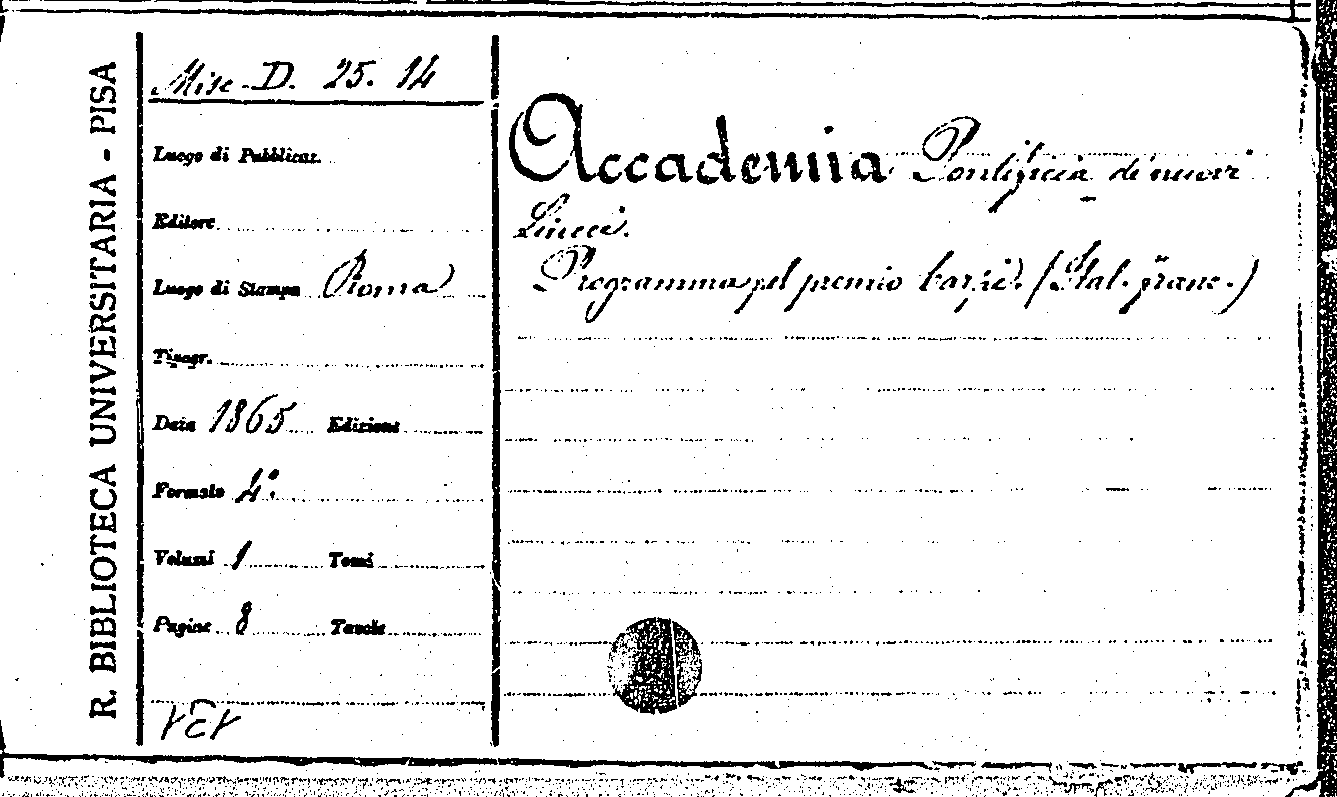 R. BIBLIOTECA UNIVERSITARIA - PISA
Misc. D. 25. 14
Luogo di Pubblicaz.
Editore
Luogo di Stampa Roma
Tipogr.
Data 1865 Edizione
Formato 4º.
Volumi 1 Tomi
Pagine 8 Tavole
Accademia Pontificia di nuovi
Lincei.
Programma pel premio Carpi. (Ital. franc.)